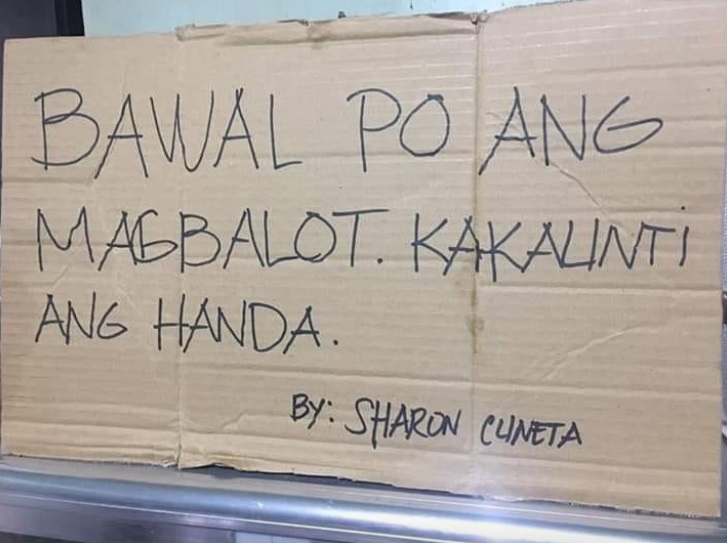 BAWAL PO ANG
MAGBALOT. KAKAUNTi
ANG HANDA.
BY: SHARON CUNETA